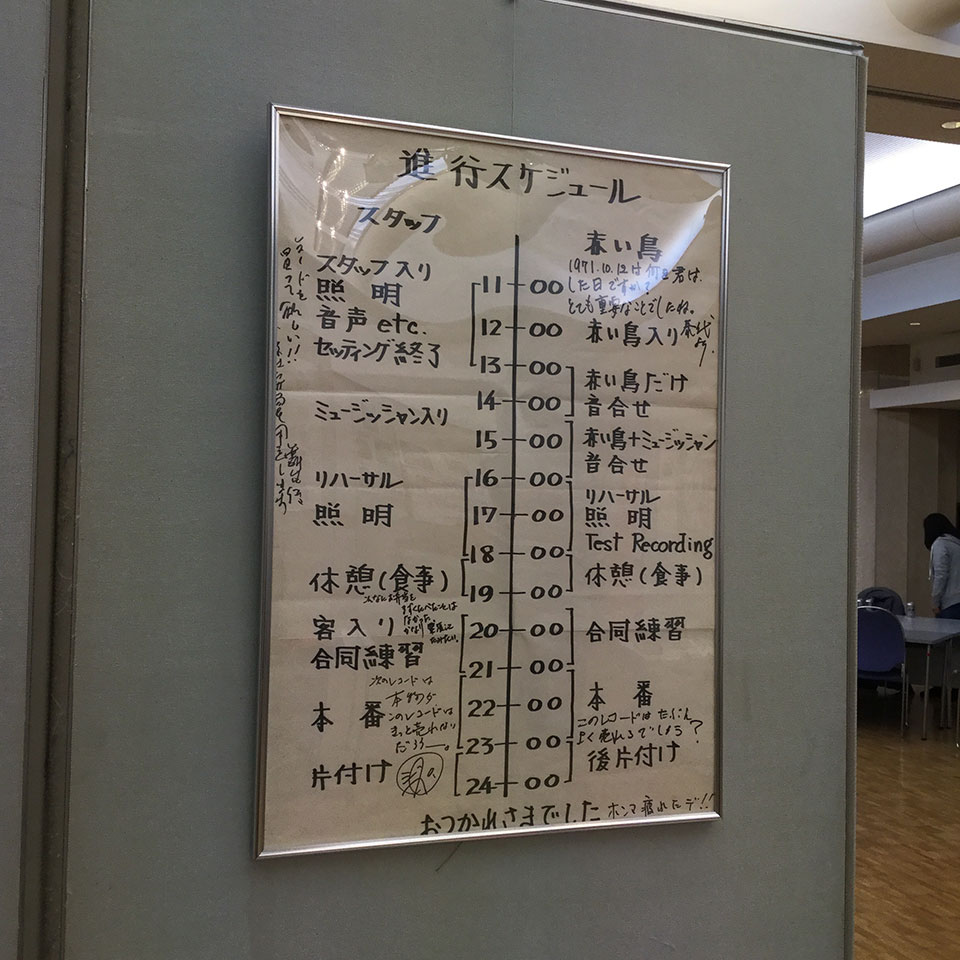 進行スケジュール
スタッフ
赤い鳥
スタッフ入り
照明
音声etc.
セッティング終了
ミュージッシャン入り
リハーサル
照明
休憩(食事)
客入り
合同練習
次のレコードは
本物か
このレコードは
きっと売れない
だろうー。
本番
片付け
11 00
12 00
13 00
14 00
15 00
16 00
17 00
18 00
19 00
20 00
21 00
22 00
23 00
24 00
1971.10.12は何を君は
した日ですか?
とても重要なことでしたね。
赤い鳥入り
赤い鳥だけ
音合せ
赤い鳥+ミュージッシャン
音合せ
リハーサル
照明
Test Recording
休憩(食事)
合同練習
本番
このレコードはたぶん
よく売れるでしょう?
後片付け
おつかれさまでした ホンマ疲れたデ!!
買って欲しい!!